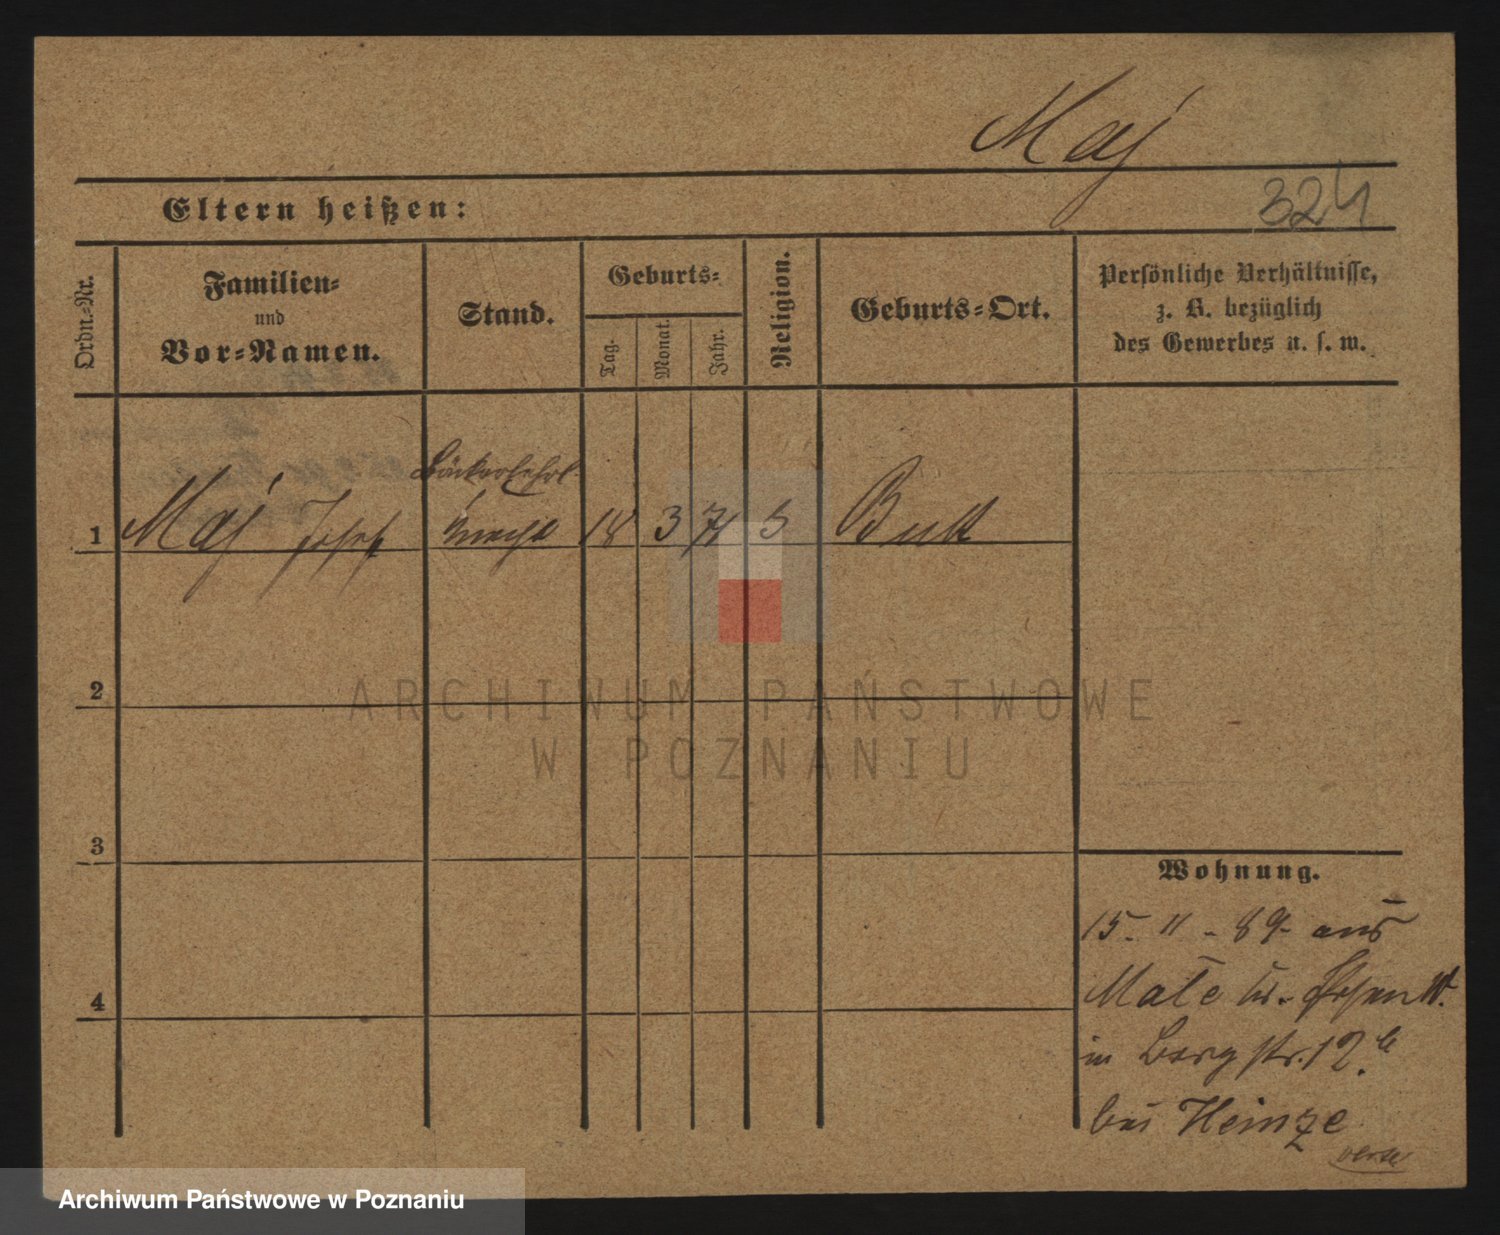 Maj
324
Eltern heißen:
Ordn.-Nr.
Familien-
und
Vor-Namen.
Stand.
Geburts-
Tag.
Monat.
Jahr.
Religion.
Geburts-Ort.
Persönliche Verhältnisse,
z. B. bezüglich
des Gewerbes u. s. w.
Bäckerlehrl.
1 Maj Josef Knecht 18 3 71 Bukk
2
ARCHIWUM PAŃSTWOWE
W POZNANIU
3
4
Wohnung.
15. 11 - 89. aus
Male
in Bergstr. 12b
bei Heinze
verte
Archiwum Państwowe w Poznaniu